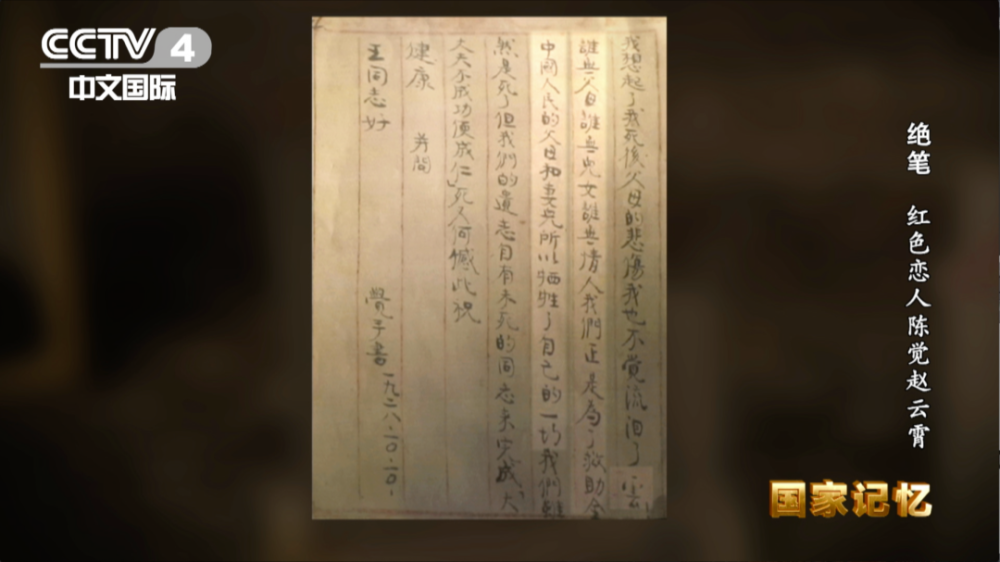 CCTV 4
中文国际
绝笔 红色恋人陈觉赵云霄
我想起了我死後父母的悲傷我也不覺流泪了雲！
誰無父母誰無兒女誰無情人我們正是為了救助全
中國人民的父母和妻兒所以牺牲了自己的一切我們雖
然是死了但我們的遺志自有未死的同志來完成「大
丈夫不成功便成仁」死又何憾此祝
健康 并問
王同志好
覺手書 一九二八·一〇·一〇·
国家记忆